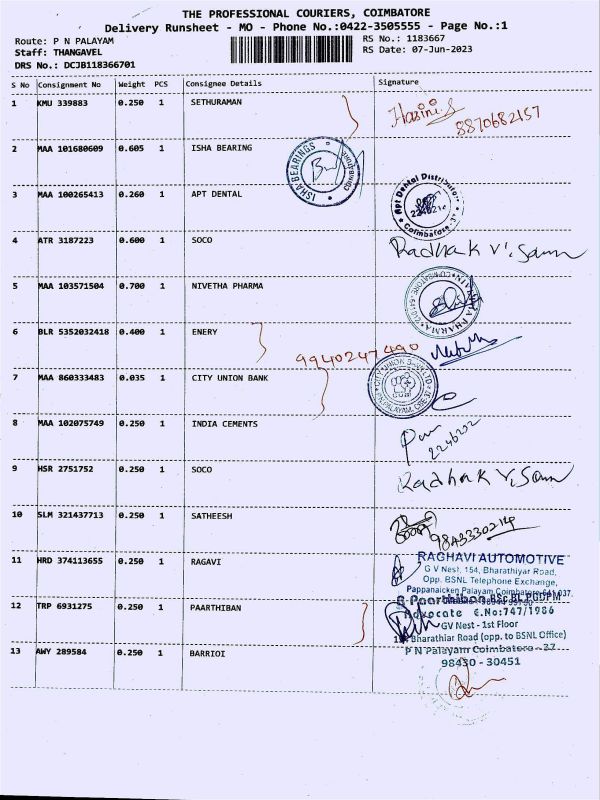 THE PROFESSIONAL COURIERS, COIMBATORE
Delivery Runsheet - MO - Phone No.:0422-3505555 - Page No.:1
Route: P N PALAYAM
Staff: THANGAVEL
DRS No.: DCJB118366701
RS No.: 1183667
RS Date: 07-Jun-2023
S No Consignment No Weight PCS Consignee Details Signature
1 KMU 339883 0.250 1 SETHURAMAN
Hasini.S
8870682157
2 MAA 101680609 0.605 1 ISHA BEARING
ISHA BEARINGS
3 MAA 100265413 0.260 1 APT DENTAL
Apt Dental Distributors
Coimbatore - 37
4 ATR 3187223 0.600 1 SOCO
Radhak
5 MAA 103571504 0.700 1 NIVETHA PHARMA
6 BLR 5352032418 0.400 1 ENERY
9940247490
7 MAA 860333483 0.035 1 CITY UNION BANK
CITY UNION BANK LTD
8 MAA 102075749 0.250 1 INDIA CEMENTS
9 HSR 2751752 0.250 1 SOCO
Radhak
10 SLM 321437713 0.250 1 SATHEESH
9843330214
11 HRD 374113655 0.250 1 RAGAVI
RAGHAVI AUTOMOTIVE
G V Nest, 154, Bharathiyar Road,
Opp. BSNL Telephone Exchange,
Pappanaicken Palayam Coimbatore-641 037.
12 TRP 6931275 0.250 1 PAARTHIBAN
Paarthiban BSc BL PGDPM
Advocate E.No:747/1986
GV Nest - 1st Floor
Bharathiar Road (opp. to BSNL Office)
P N Palayam Coimbatore - 37
98430 - 30451
13 AWY 289584 0.250 1 BARRIOI